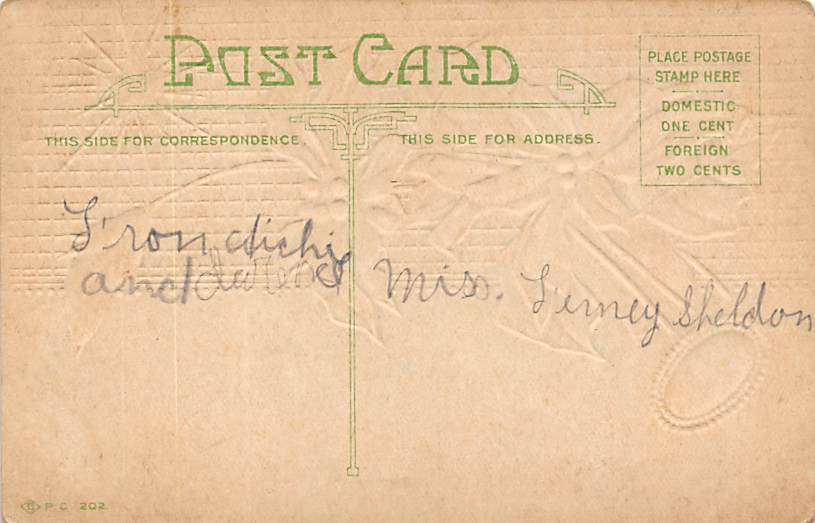 POST CARD
THIS SIDE FOR CORRESPONDENCE.
THIS SIDE FOR ADDRESS.
PLACE POSTAGE
STAMP HERE
DOMESTIC
ONE CENT
FOREIGN
TWO CENTS
and
Miss. Sheldon
P.C. 202.